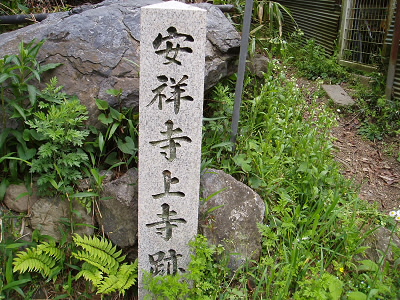 安祥寺上寺跡